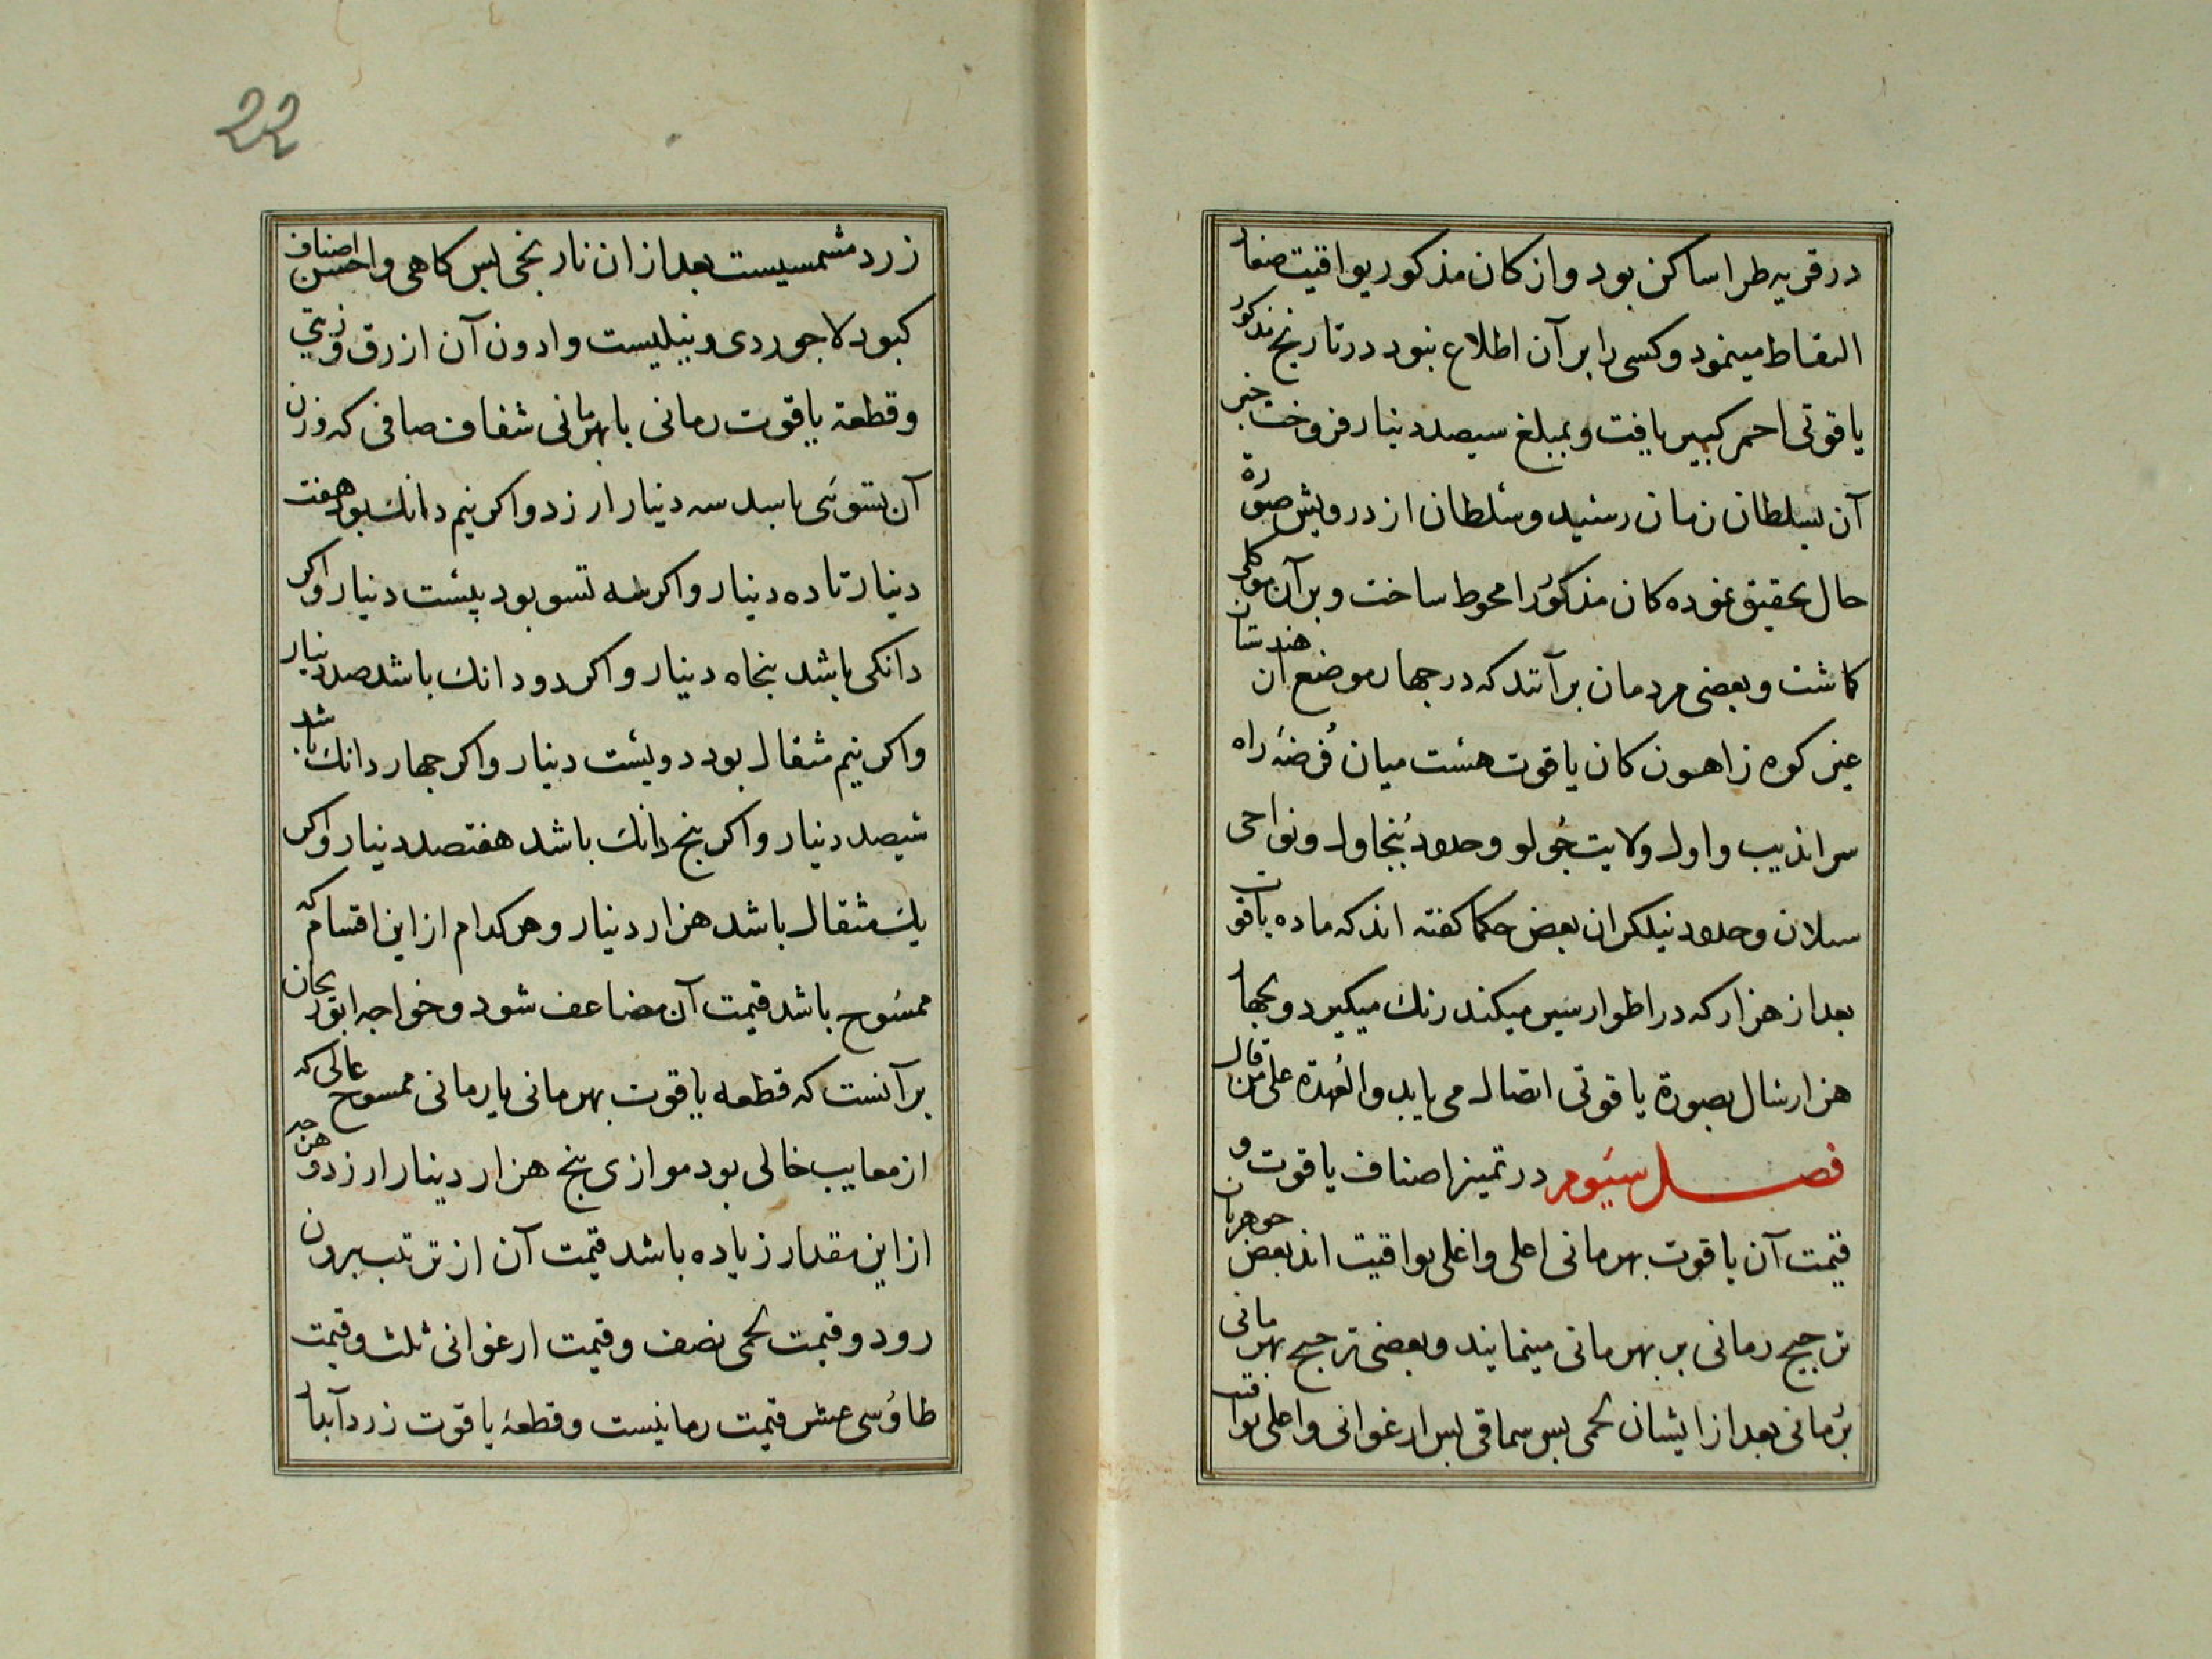 در قریه طرا ساکن بود و از کان مذکور یواقیت صغار
التقاط مینمود و کسی را بر آن اطلاع نبود در تاریخ مذکور
یاقوتی احمر کبیر یافت و بمبلغ سیصد دینار فروخت خبر
آن بسلطان زمان رسید و سلطان از درویش صورة
حال تحقیق نموده کان مذکور را محوط ساخت و بر آن موکلی
کماشت و بعضی مردمان برآنند که در چهار موضع از هندستان
غیر کوه زاهون کان یاقوت هست میان فرضۀ راه
سراندیب و اول ولایت جولو و حدود بنجاول و نواحی
سیلان و حدود نیلکران بعض حکما کفته اند که ماده یاقوت
بعد از هزار که در اطوار سیر میکند رنك میکیرد و بچهار
هزار سال بصورة یاقوتی اتصال می یابد والعهدة علی من قال
فصل سیوم در تمیز اصناف یاقوت و
قیمت آن یاقوت بهرمانی اعلی و اغلی یواقیت اند بعض جوهریان
ترجیح رمانی بر بهرمانی مینمایند و بعضی ترجیح بهرمانی
برمانی بعد از ایشان لحمی بس سماقی بس ارغوانی و اعلی یواقیت
22
زرد مشمسیست بعد از ان نارنجی بس کاهی و احسن اصناف
کبود لاجوردی و نیلیست و ادون آن ازرق و زیتی
و قطعۀ یاقوت رمانی یا بهرمانی شفاف صافی که وزن
آن تسوئی باسد سه دینار ارزد و اکر نیم دانك بود هفت
دینار تا ده دینار و اکر سه تسو بود بیست دینار و اکر
دانکی باشد بنجاه دینار و اکر دو دانك باشد صد دینار
و اکر نیم مثقال بود دویست دینار و اکر چهار دانك باشد
سیصد دینار و اکر بنج دانك باشد هفتصد دینار و اکر
یك مثقال باشد هزار دینار و هر کدام از این اقسام که
ممسوح باشد قیمت آن مضاعف شود و خواجه ابوریحان
بر آنست که قطعه یاقوت بهرمانی یا رمانی ممسوح عالی که
از معایب خالی بود موازی بنج هزار دینار ارزد و هر چه
از این مقدار زیاده باشد قیمت آن از ترتیب بیرون
رود و قیمت لحمی نصف و قیمت ارغوانی ثلث و قیمت
طاوسی عشر قیمت رمانیست و قطعۀ یاقوت زرد آبدار